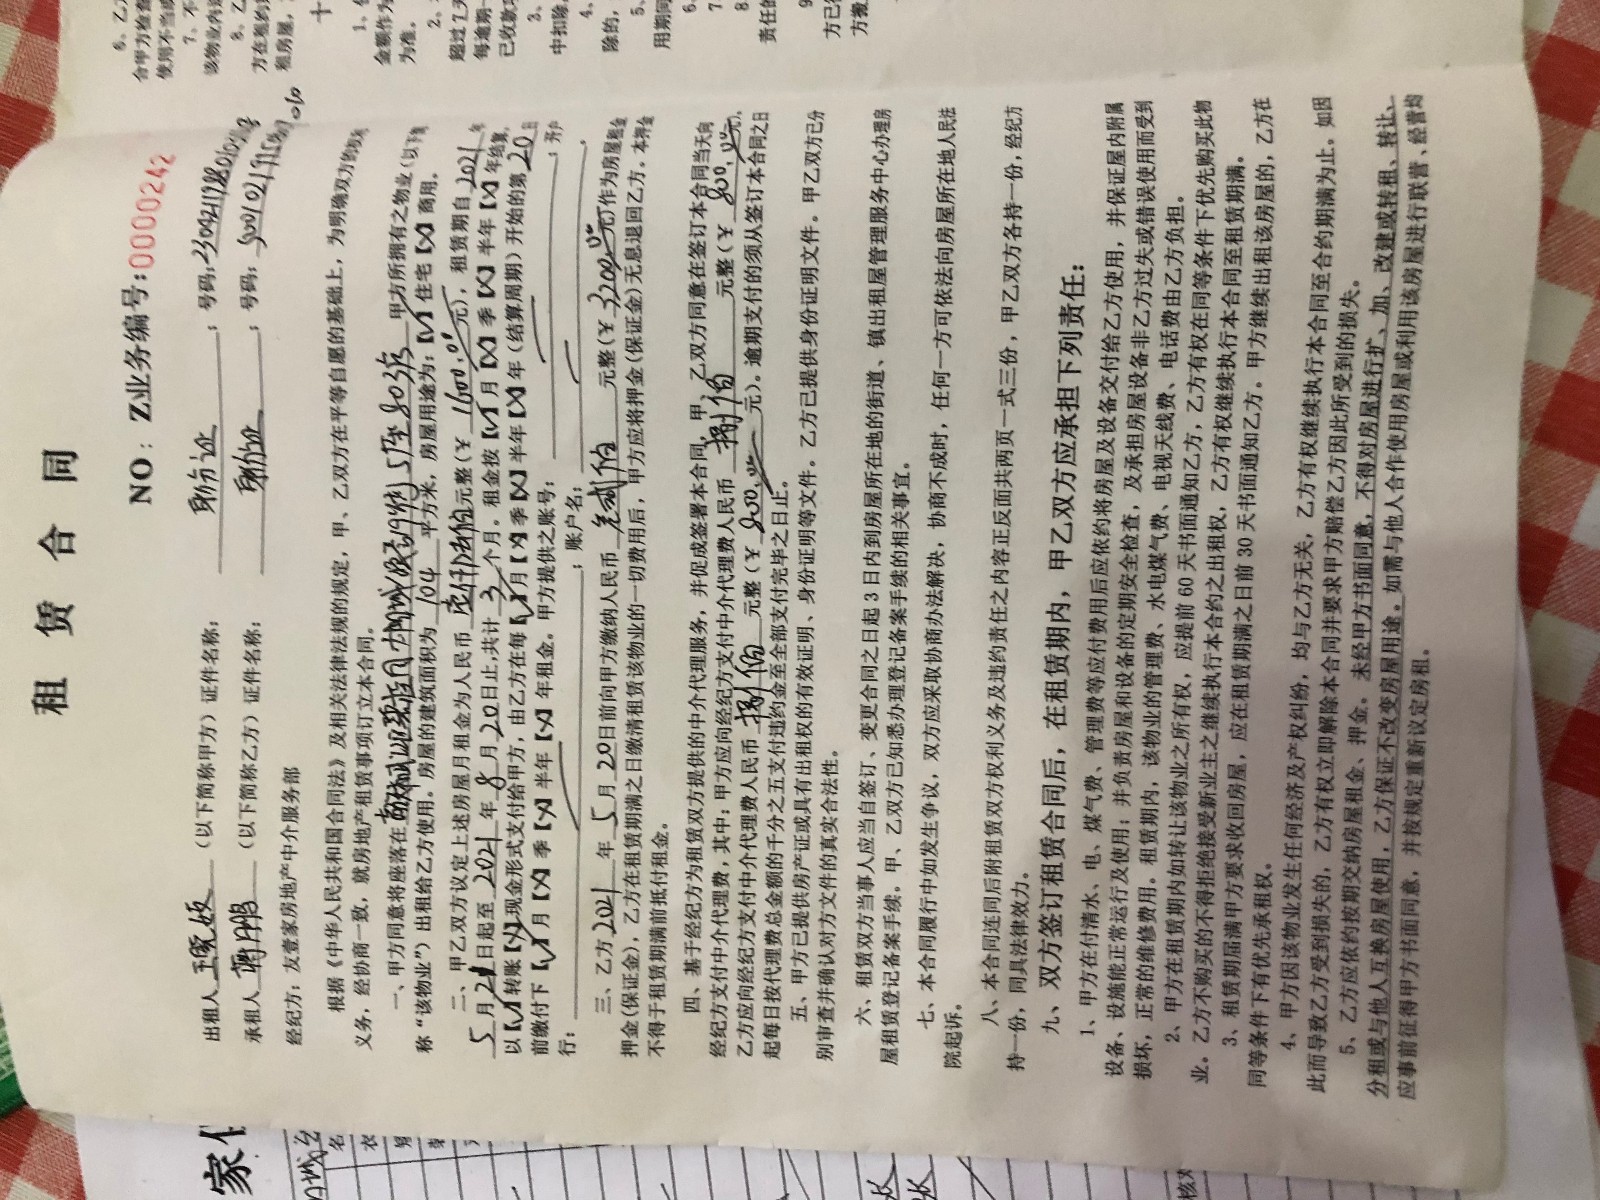 租 赁 合 同
NO：Z业务编号:0000242
出租人 （以下简称甲方）证件名称： 身份证 ；号码:
承租人 蒋鹏 （以下简称乙方）证件名称： 身份证 ；号码:
经纪方：友壹家房地产中介服务部
根据《中华人民共和国合同法》及相关法律法规的规定，甲、乙双方在平等自愿的基础上，为明确双方的权利
义务，经协商一致，就房地产租赁事项订立本合同。
一、甲方同意将座落在 甲方所拥有之物业（以下简
称“该物业”）出租给乙方使用。房屋的建筑面积为 104 平方米，房屋用途为：【√】住宅【X】商用。
二、甲乙双方议定上述房屋月租金为人民币 元整（￥ 1600.00 元），租赁期自 2021 年
5 月 21 日起至 2021 年 8 月 20 日止,共计 3 个月。租金按【√】月【X】季【X】半年【X】年结算,
以【√】转账【√】现金形式支付给甲方，由乙方在每【√】月【X】季【X】半年【X】年（结算周期）开始的第 20 日
前缴付下【√】月【X】季【X】半年【X】年租金。甲方提供之账号： ；开户
行： ；账户名： 。
三、乙方 2021 年 5 月 20 日前向甲方缴纳人民币 叁贰佰 元整（￥ 3200.00 元)作为房屋租金
押金(保证金)，乙方在租赁期满之日缴清租赁该物业的一切费用后，甲方应将押金(保证金)无息退回乙方。本押金
不得于租赁期满前抵付租金。
四、基于经纪方为租赁双方提供的中介代理服务，并促成签署本合同，甲、乙双方同意在签订本合同当天向
经纪方支付中介代理费，其中：甲方应向经纪方支付中介代理费人民币 捌佰 元整（￥ 800.00 元)，
乙方应向经纪方支付中介代理费人民币 捌佰 元整（￥ 800.00 元）。逾期支付的须从签订本合同之日
起每日按代理费总金额的千分之五支付违约金至全部支付完毕之日止。
五、甲方已提供房产证或具有出租权的有效证明、身份证明等文件。乙方已提供身份证明文件。甲乙双方已分
别审查并确认对方文件的真实合法性。
六、租赁双方当事人应当自签订、变更合同之日起 3 日内到房屋所在地的街道、镇出租屋管理服务中心办理房
屋租赁登记备案手续。甲、乙双方已知悉办理登记备案手续的相关事宜。
七、本合同履行中如发生争议，双方应采取协商办法解决，协商不成时，任何一方可依法向房屋所在地人民法
院起诉。
八、本合同连同后附租赁双方权利义务及违约责任之内容正反面共两页一式三份，甲乙双方各持一份，经纪方
持一份，同具法律效力。
九、双方签订租赁合同后，在租赁期内，甲乙双方应承担下列责任：
1、甲方在付清水、电、煤气费、管理费等应付费用后应依约将房屋及设备交付给乙方使用，并保证屋内附属
设备、设施能正常运行及使用；并负责房屋和设备的定期安全检查，及承担房屋设备非乙方过失或错误使用而受到
损坏，正常的维修费用。租赁期内，该物业的管理费、水电煤气费、电视天线费、电话费由乙方负担。
2、甲方在租赁期内如转让该物业之所有权，应提前 60 天书面通知乙方，乙方有权在同等条件下优先购买此物
业。乙方不购买的不得拒绝接受新业主之继续执行本合约之出租权，乙方有权继续执行本合同至租赁期满。
3、租赁期届满甲方要求收回房屋，应在租赁期满之日前 30 天书面通知乙方。甲方继续出租该房屋的，乙方在
同等条件下有优先承租权。
4、甲方因该物业发生任何经济及产权纠纷，均与乙方无关，乙方有权继续执行本合同至合约期满为止。如因
此而导致乙方受到损失的，乙方有权立即解除本合同并要求甲方赔偿乙方因此所受到的损失。
5、乙方应依约按期交纳房屋租金、押金。未经甲方书面同意，不得对房屋进行扩、加、改建或转租、转让、
分租或与他人互换房屋使用，乙方保证不改变房屋用途。如需与他人合作使用房屋或利用该房屋进行联营、经营均
应事前征得甲方书面同意，并按规定重新议定房租。